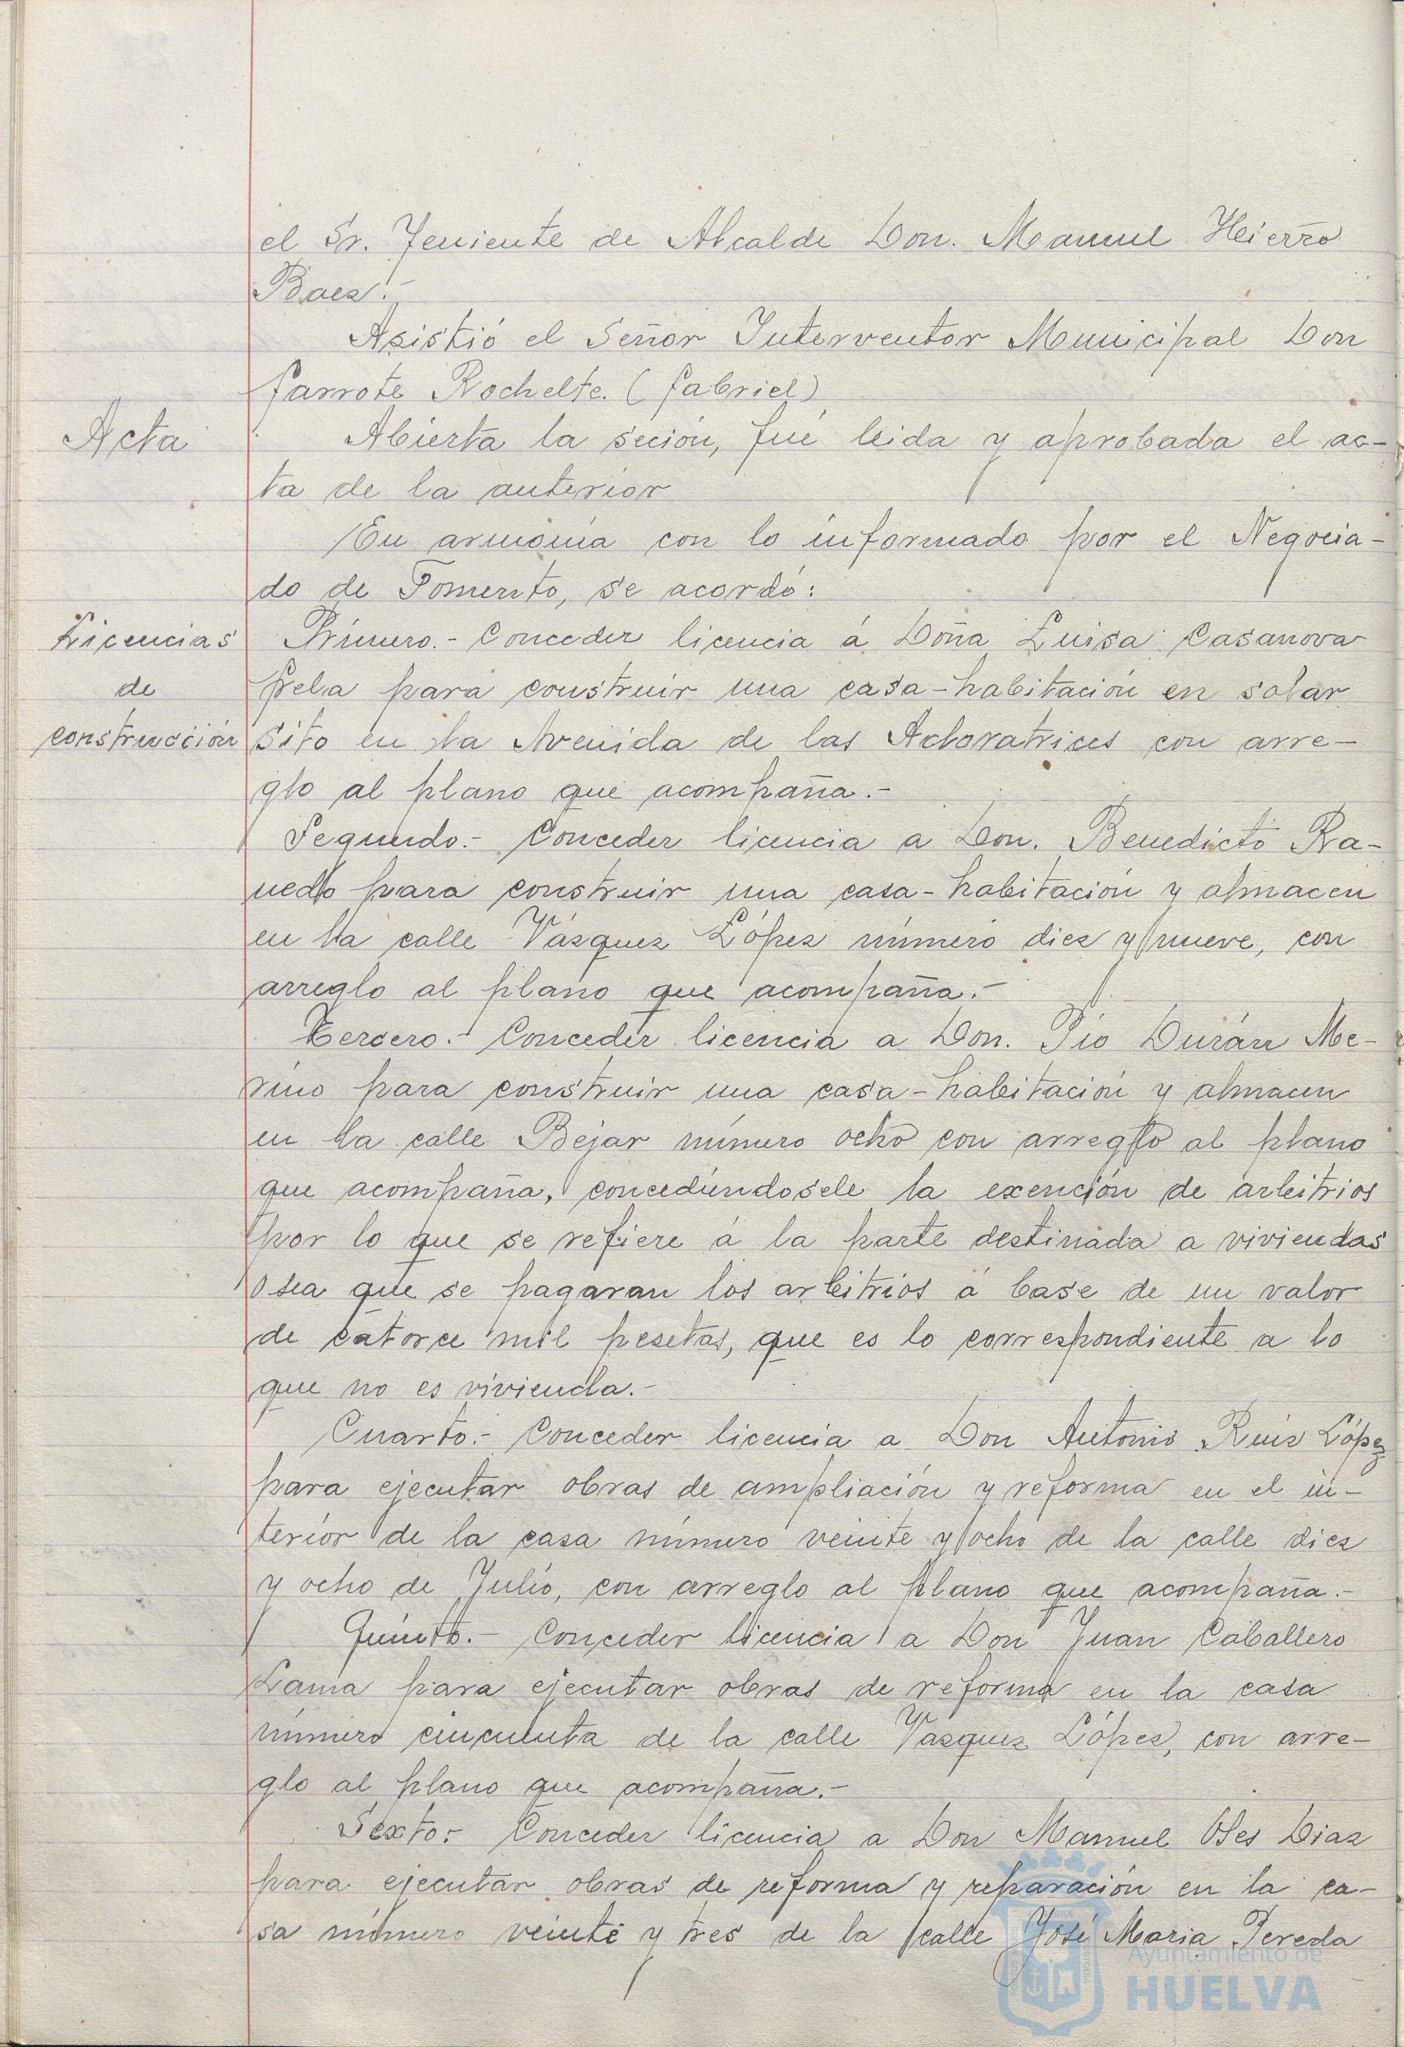 el Sr. Teniente de Alcalde Don. Manuel Hierro
Baez.-
Asistió el Señor Interventor Municipal Don
Garrote Rochelte. (Gabriel)
Acta
Abierta la seción, fué leida y aprobada el ac-
ta de la anterior
En armonía con lo informado por el Negocia-
do de Fomento, se acordó:
Licencias
de
construcción
Primero.- Conceder licencia á Doña Luisa Casanova
para construir una casa-habitación en solar
sito en la Avenida de las Adoratrices con arre-
glo al plano que acompaña.-
Segundo.- Conceder licencia a Don. Benedicto Ra-
nedo para construir una casa-habitación y almacen
en la calle Vázquez López número diez y nueve, con
arreglo al plano que acompaña.-
Tercero.- Conceder licencia a Don. Pío Durán Me-
rino para construir una casa-habitación y almacen
en la calle Bejar número ocho con arreglo al plano
que acompaña, concediendosele la exención de arbitrios
por lo que se refiere á la parte destinada a viviendas
osea que se pagaran los arbitrios á base de un valor
de catorce mil pesetas, que es lo correspondiente a lo
que no es vivienda.-
Cuarto.- Conceder licencia a Don Antonio Ruiz López
para ejecutar obras de ampliación y reforma en el in-
terior de la casa número veinte y ocho de la calle diez
y ocho de Julio, con arreglo al plano que acompaña.-
Quinto.- Conceder licencia a Don Juan Caballero
Lama para ejecutar obras de reforma en la casa
número cincuenta de la calle Vazquez López, con arre-
glo al plano que acompaña.-
Sexto.- Conceder licencia a Don Manuel Oses Diaz
para ejecutar obras de reforma y reparación en la ca-
sa número veinte y tres de la calle José Maria Pereda
Ayuntamiento de
HUELVA